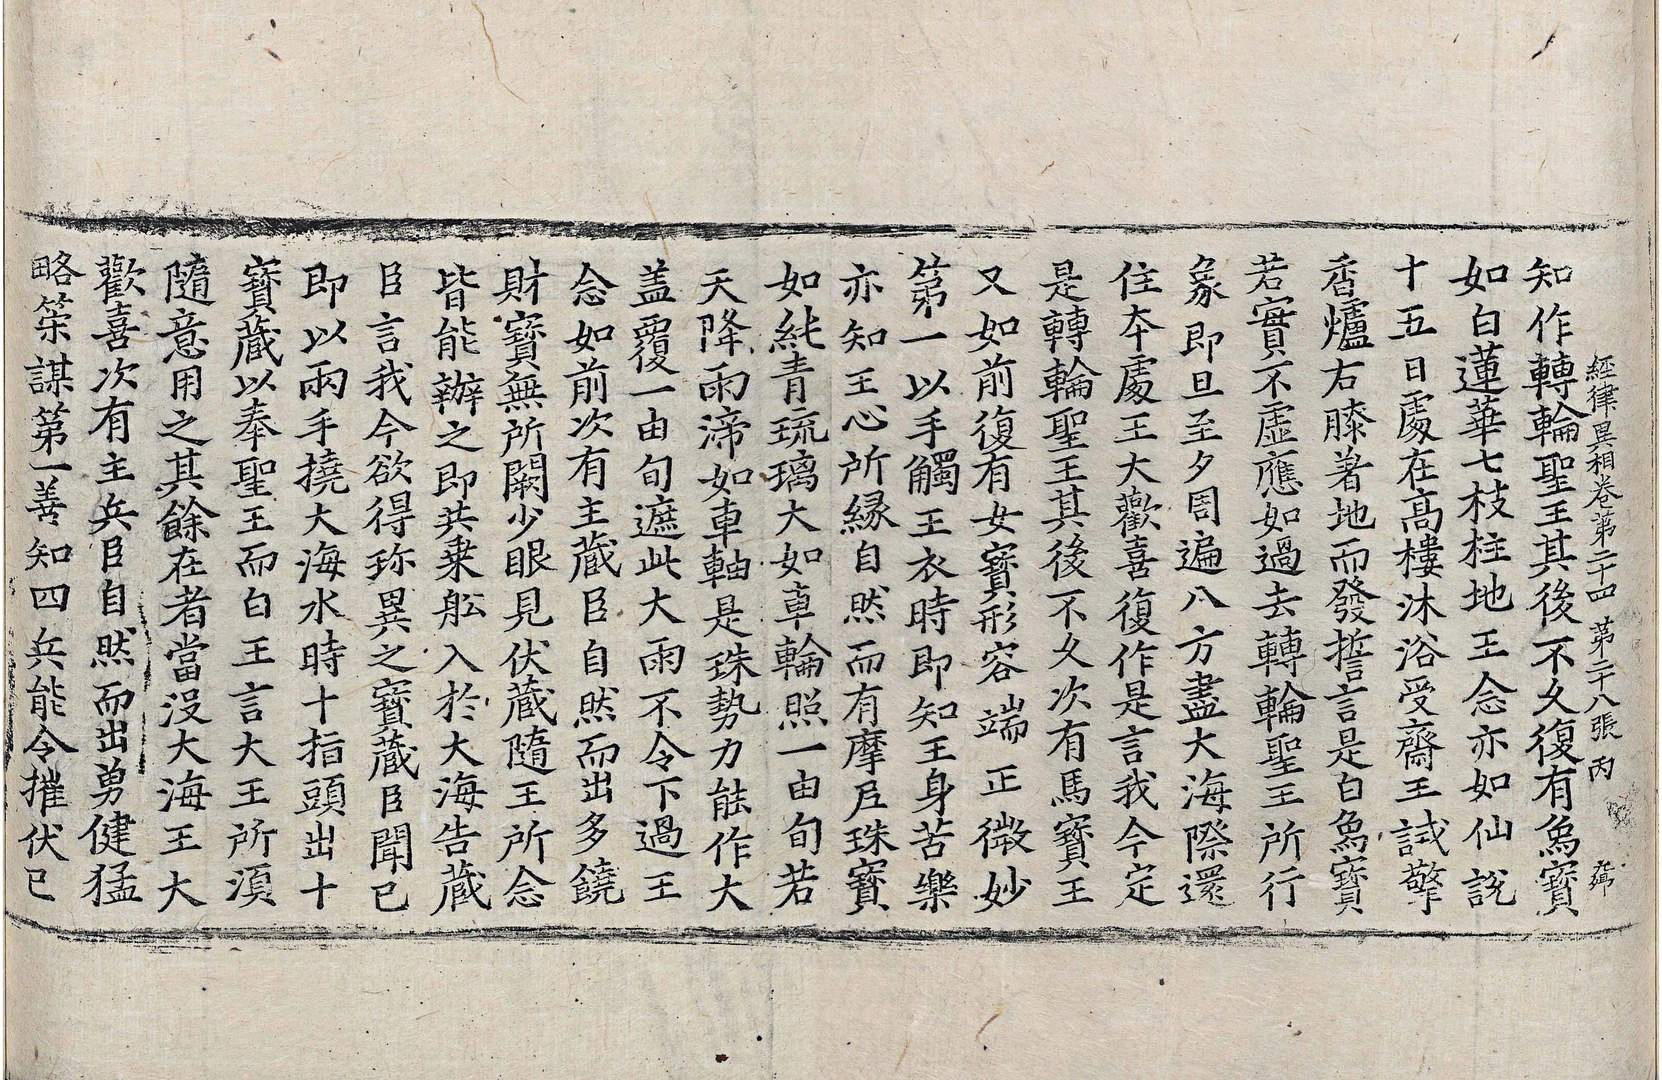 經律異相卷第二十四 第二十八張 丙
知作轉輪聖王其後不久復有象寶
如白蓮華七枝柱地王念亦如仙說
十五日處在高樓沐浴受齋王試擎
香爐右膝著地而發誓言是白象寶
若實不虛應如過去轉輪聖王所行
象即旦至夕周遍八方盡大海際還
住本處王大歡喜復作是言我今定
是轉輪聖王其後不久次有馬寶王
又如前復有女寶形容端正微妙
第一以手觸王衣時即知王身苦樂
亦知王心所緣自然而有摩尼珠寶
如純青琉璃大如車輪照一由旬若
天降雨渧如車軸是珠勢力能作大
盖覆一由旬遮此大雨不令下過王
念如前次有主藏臣自然而出多饒
財寶無所闕少眼見伏藏隨王所念
皆能辦之即共乗舩入於大海告藏
臣言我今欲得珎異之寶藏臣聞已
即以兩手撓大海水時十指頭出十
寶藏以奉聖王而白王言大王所湏
隨意用之其餘在者當没大海王大
歡喜次有主兵臣自然而出勇健猛
略筞謀第一善知四兵能令摧伏已